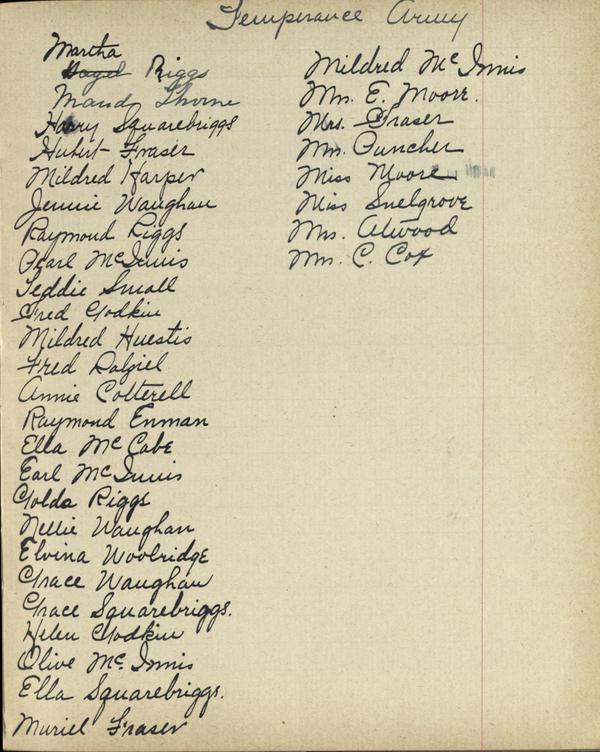 Temperance Army
Martha
Hazel Riggs
Maud Thorne
Harry Squarebriggs
Hubert Fraser
Mildred Harper
Jennie Waughan
Raymond Riggs
Pearl McInnis
Teddie Small
Fred Godkin
Mildred Huestis
Fred Dalziel
Annie Cotterell
Raymond Enman
Ella McCabe
Earl McInnis
Golda Riggs
Nellie Waughan
Elvina Woolridge
Grace Waughan
Grace Squarebriggs.
Helen Godkin
Olive McInnis
Ella Squarebriggs.
Muriel Fraser
Mildred McInnis
Mrs. E. Moore.
Mrs. Fraser
Mrs. Puncher
Miss Moore
Miss Snelgrove
Mrs. Atwood
Mrs. C. Cox